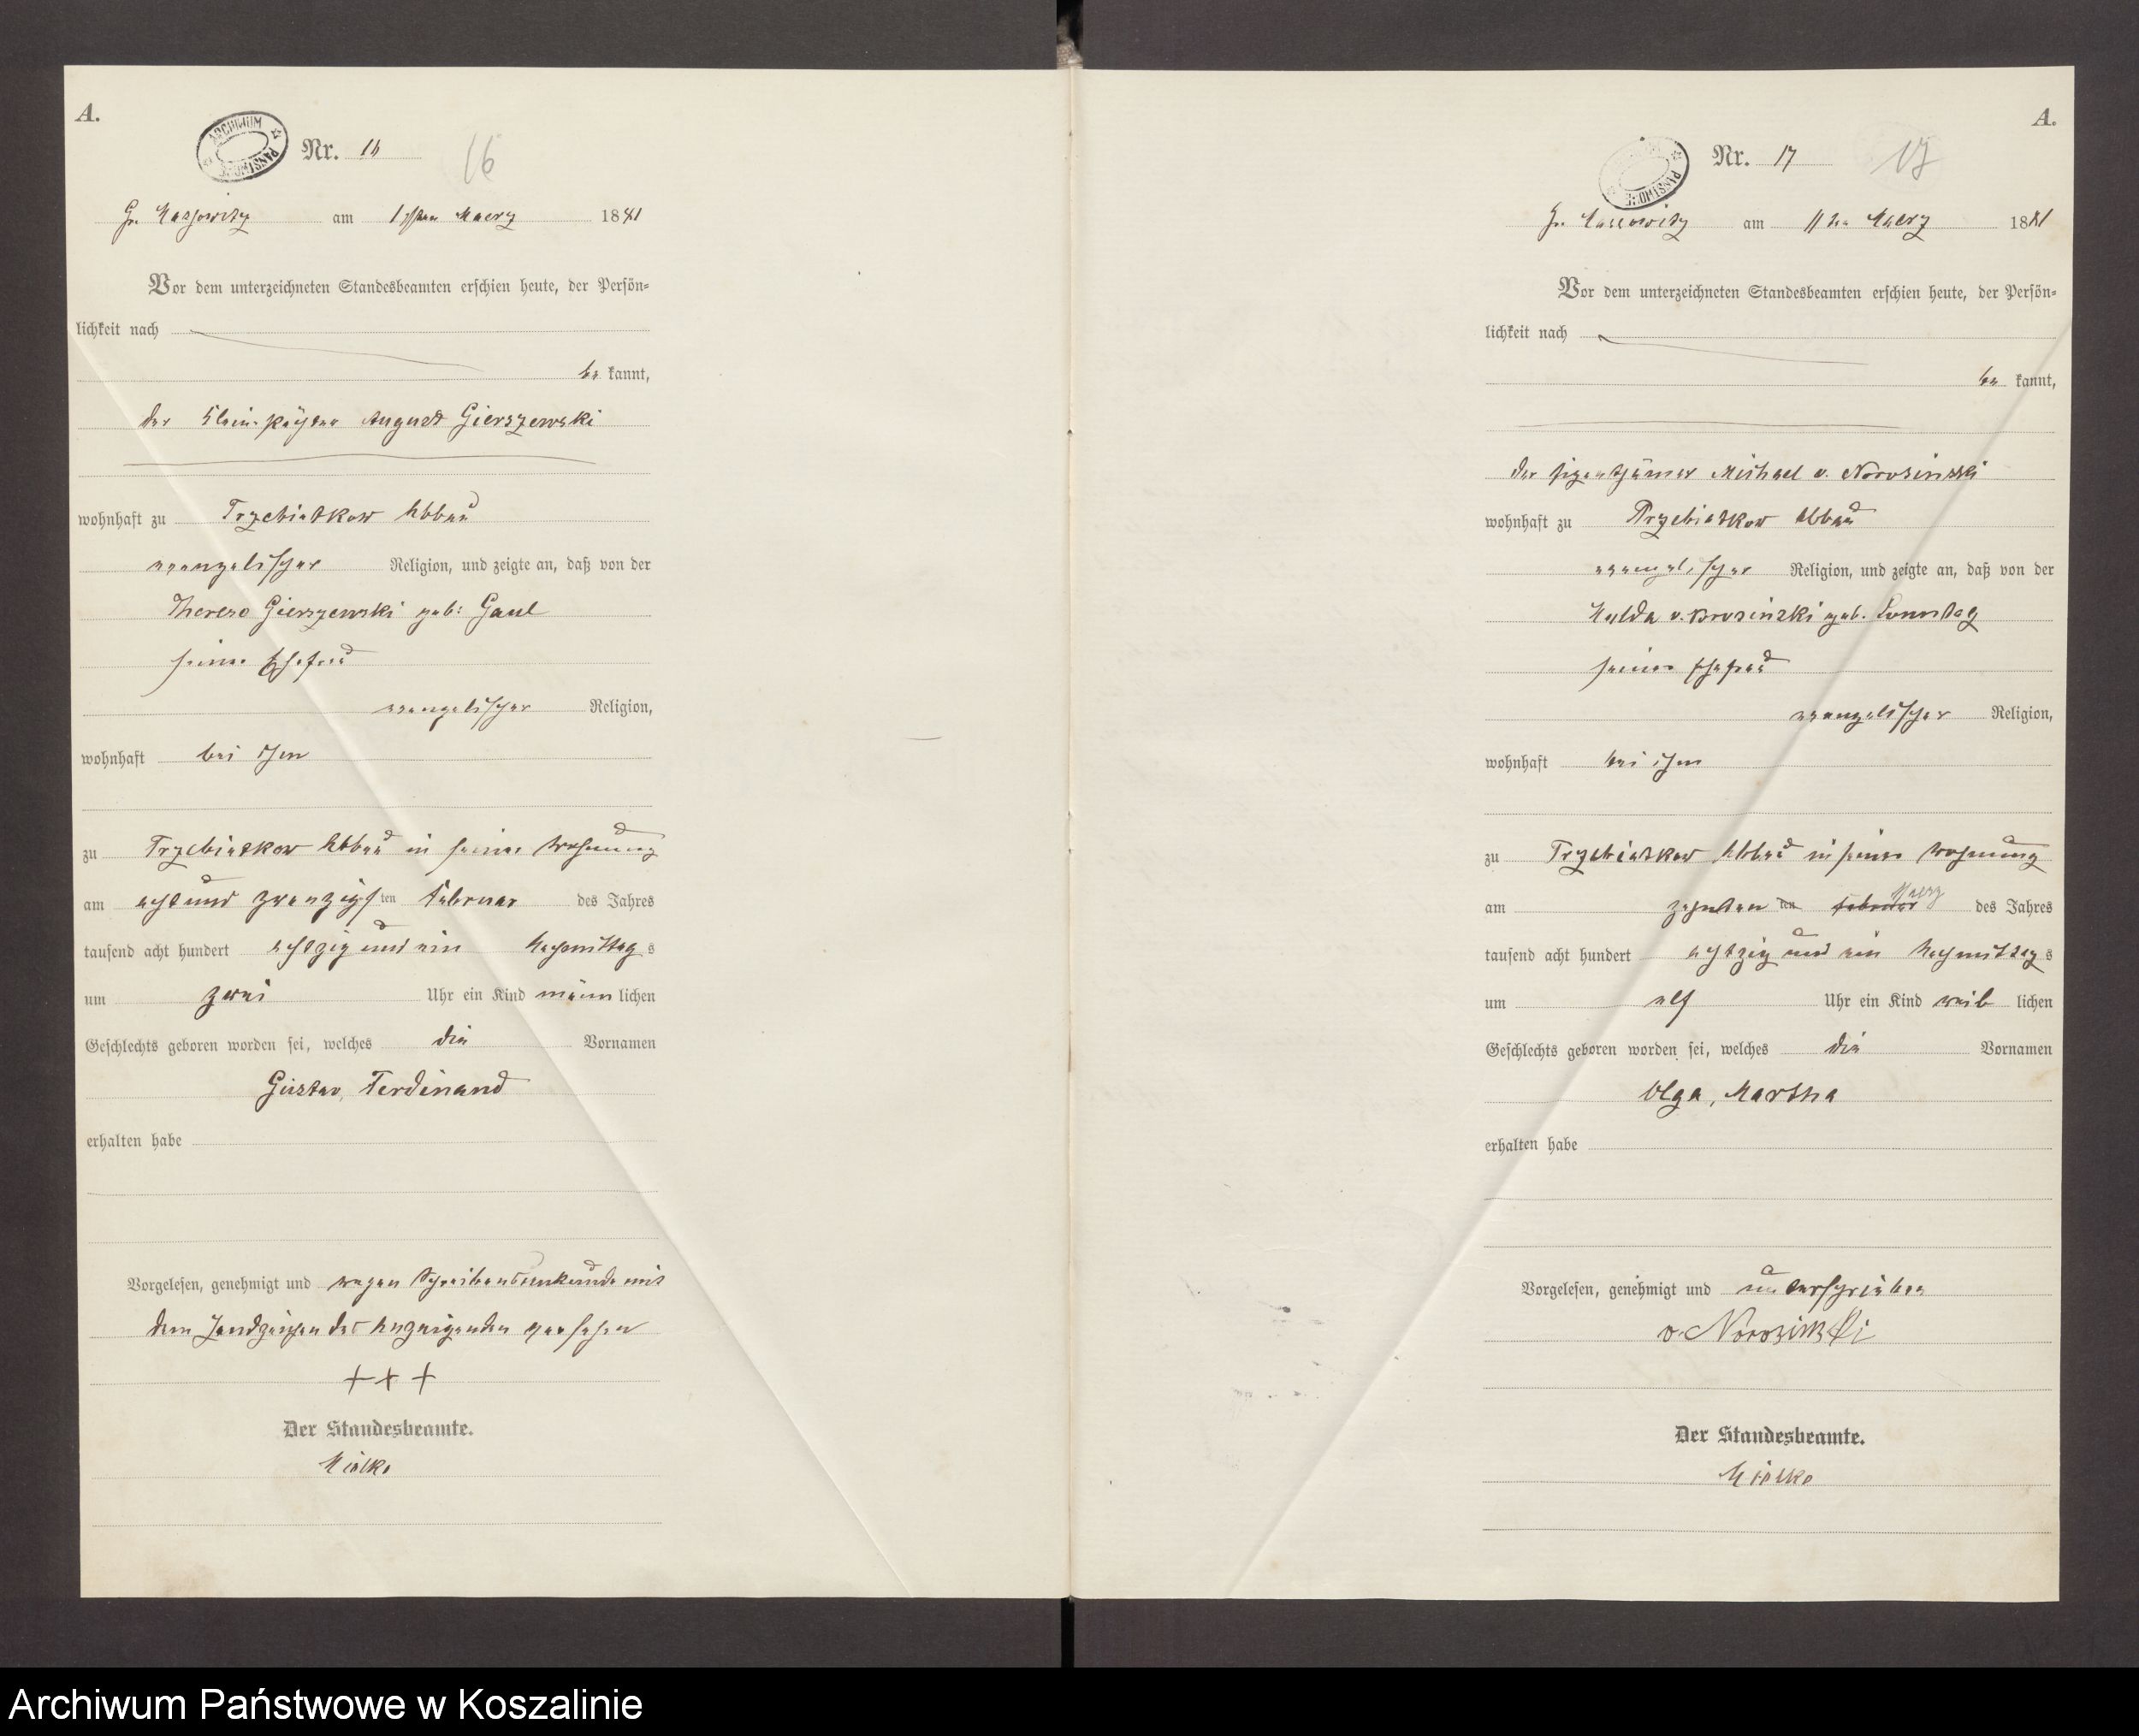 A.
ARCHIWUM PAŃSTWOWE
Nr. 16
16
Gr. Massowitz am 1sten Maerz 1881
Vor dem unterzeichneten Standesbeamten erschien heute, der Persön-
lichkeit nach
be kannt,
der Kleinpächter August Gierszewski
wohnhaft zu Trzebiatkow Abbau
evangelischer Religion, und zeigte an, daß von der
Therese Gierszewski geb: Gaul
seiner Ehefrau
evangelischer Religion,
wohnhaft bei ihm
zu Trzebiatkow Abbau in seiner Wohnung
am acht und zwanzigsten Februar des Jahres
tausend acht hundert achtzig und ein Nachmittags
um zwei Uhr ein Kind männlichen
Geschlechts geboren worden sei, welches die Vornamen
Gustav, Ferdinand
erhalten habe
Vorgelesen, genehmigt und wegen Schreibensunkunde mit
dem Handzeichen des Anzeigenden versehen
+++
Der Standesbeamte.
Mielke
A.
PAŃSTWOWE
Nr. 17
17
Gr. Massowitz am 11ten Maerz 1881
Vor dem unterzeichneten Standesbeamten erschien heute, der Persön-
lichkeit nach
be kannt,
der Eigenthümer Michael v.
wohnhaft zu Trzebiatkow Abbau
evangelischer Religion, und zeigte an, daß von der
Hulda v. geb. Sonntag
seiner Ehefrau
evangelischer Religion,
wohnhaft bei ihm
zu Trzebiatkow Abbau in seiner Wohnung
am zehnten ten Februar Maerz des Jahres
tausend acht hundert achtzig und ein Nachmittags
um elf Uhr ein Kind weib lichen
Geschlechts geboren worden sei, welches die Vornamen
Olga, Martha
erhalten habe
Vorgelesen, genehmigt und unterschrieben
v.
Der Standesbeamte.
Mielke
Archiwum Państwowe w Koszalinie